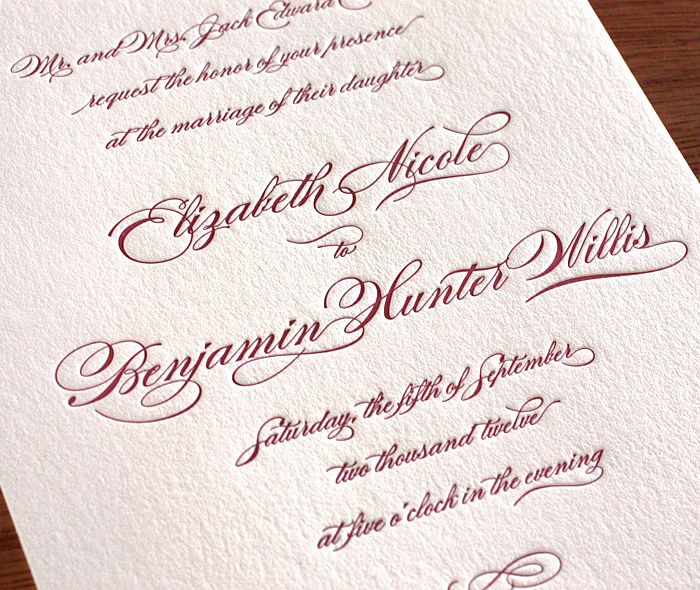 Mr. and Mrs. Jack Edward
request the honor of your presence
at the marriage of their daughter
Elizabeth Nicole
to
Benjamin Hunter Willis
Saturday, the fifth of September
two thousand twelve
at five o'clock in the evening